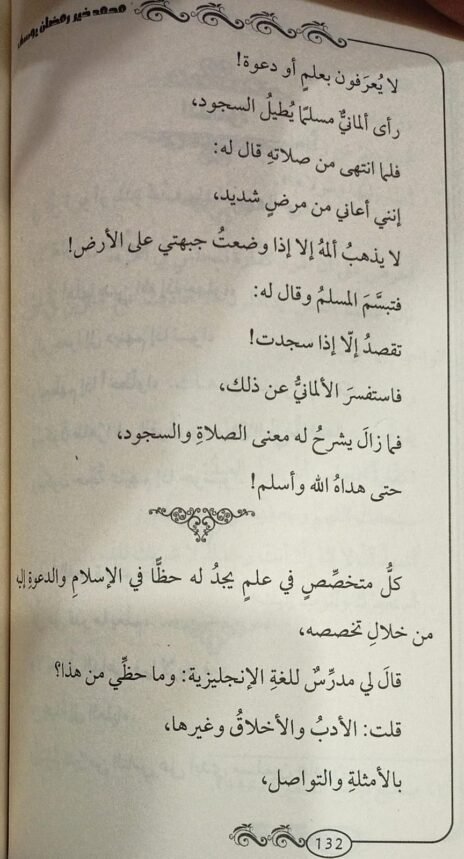 محمد خير رمضان يوسف
لا يُعرَفون بعلمٍ أو دعوة!
رأى ألمانيٌّ مسلمًا يُطيلُ السجود،
فلما انتهى من صلاتهِ قال له:
إنني أعاني من مرضٍ شديد،
لا يذهبُ ألمهُ إلا إذا وضعتُ جبهتي على الأرض!
فتبسَّمَ المسلمُ وقال له:
تقصدُ إلّا إذا سجدت!
فاستفسرَ الألمانيُّ عن ذلك،
فما زالَ يشرحُ له معنى الصلاةِ والسجود،
حتى هداهُ الله وأسلم!
كلُّ متخصِّصٍ في علمٍ يجدُ له حظًّا في الإسلامِ والدعوةِ إليه
من خلالِ تخصصه،
قالَ لي مدرِّسٌ للغةِ الإنجليزية: وما حظِّي من هذا؟
قلت: الأدبُ والأخلاقُ وغيرها،
بالأمثلةِ والتواصل،
132